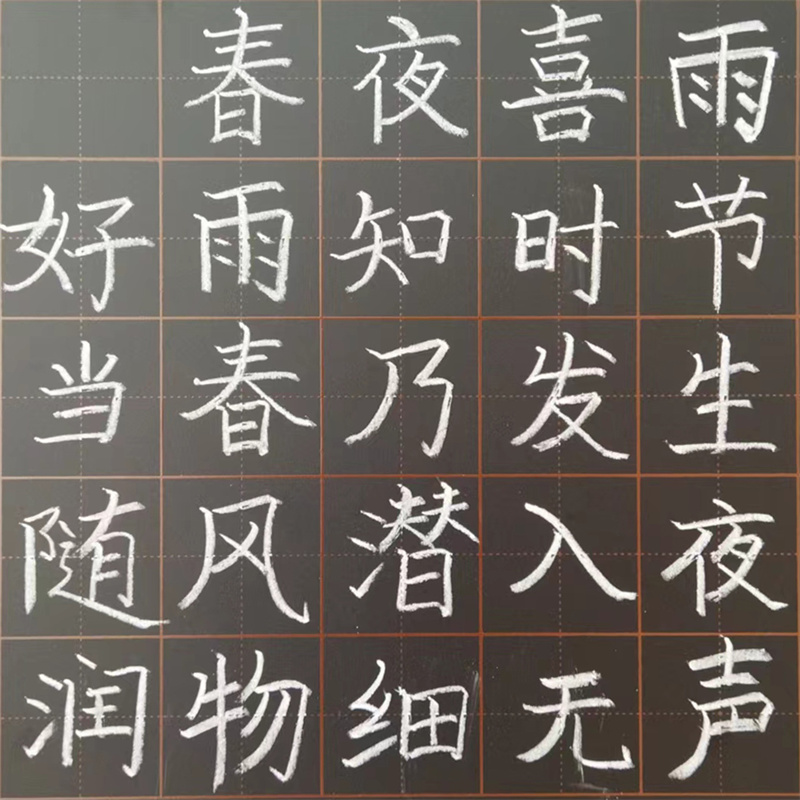 春夜喜雨
好雨知时节
当春乃发生
随风潜入夜
润物细无声